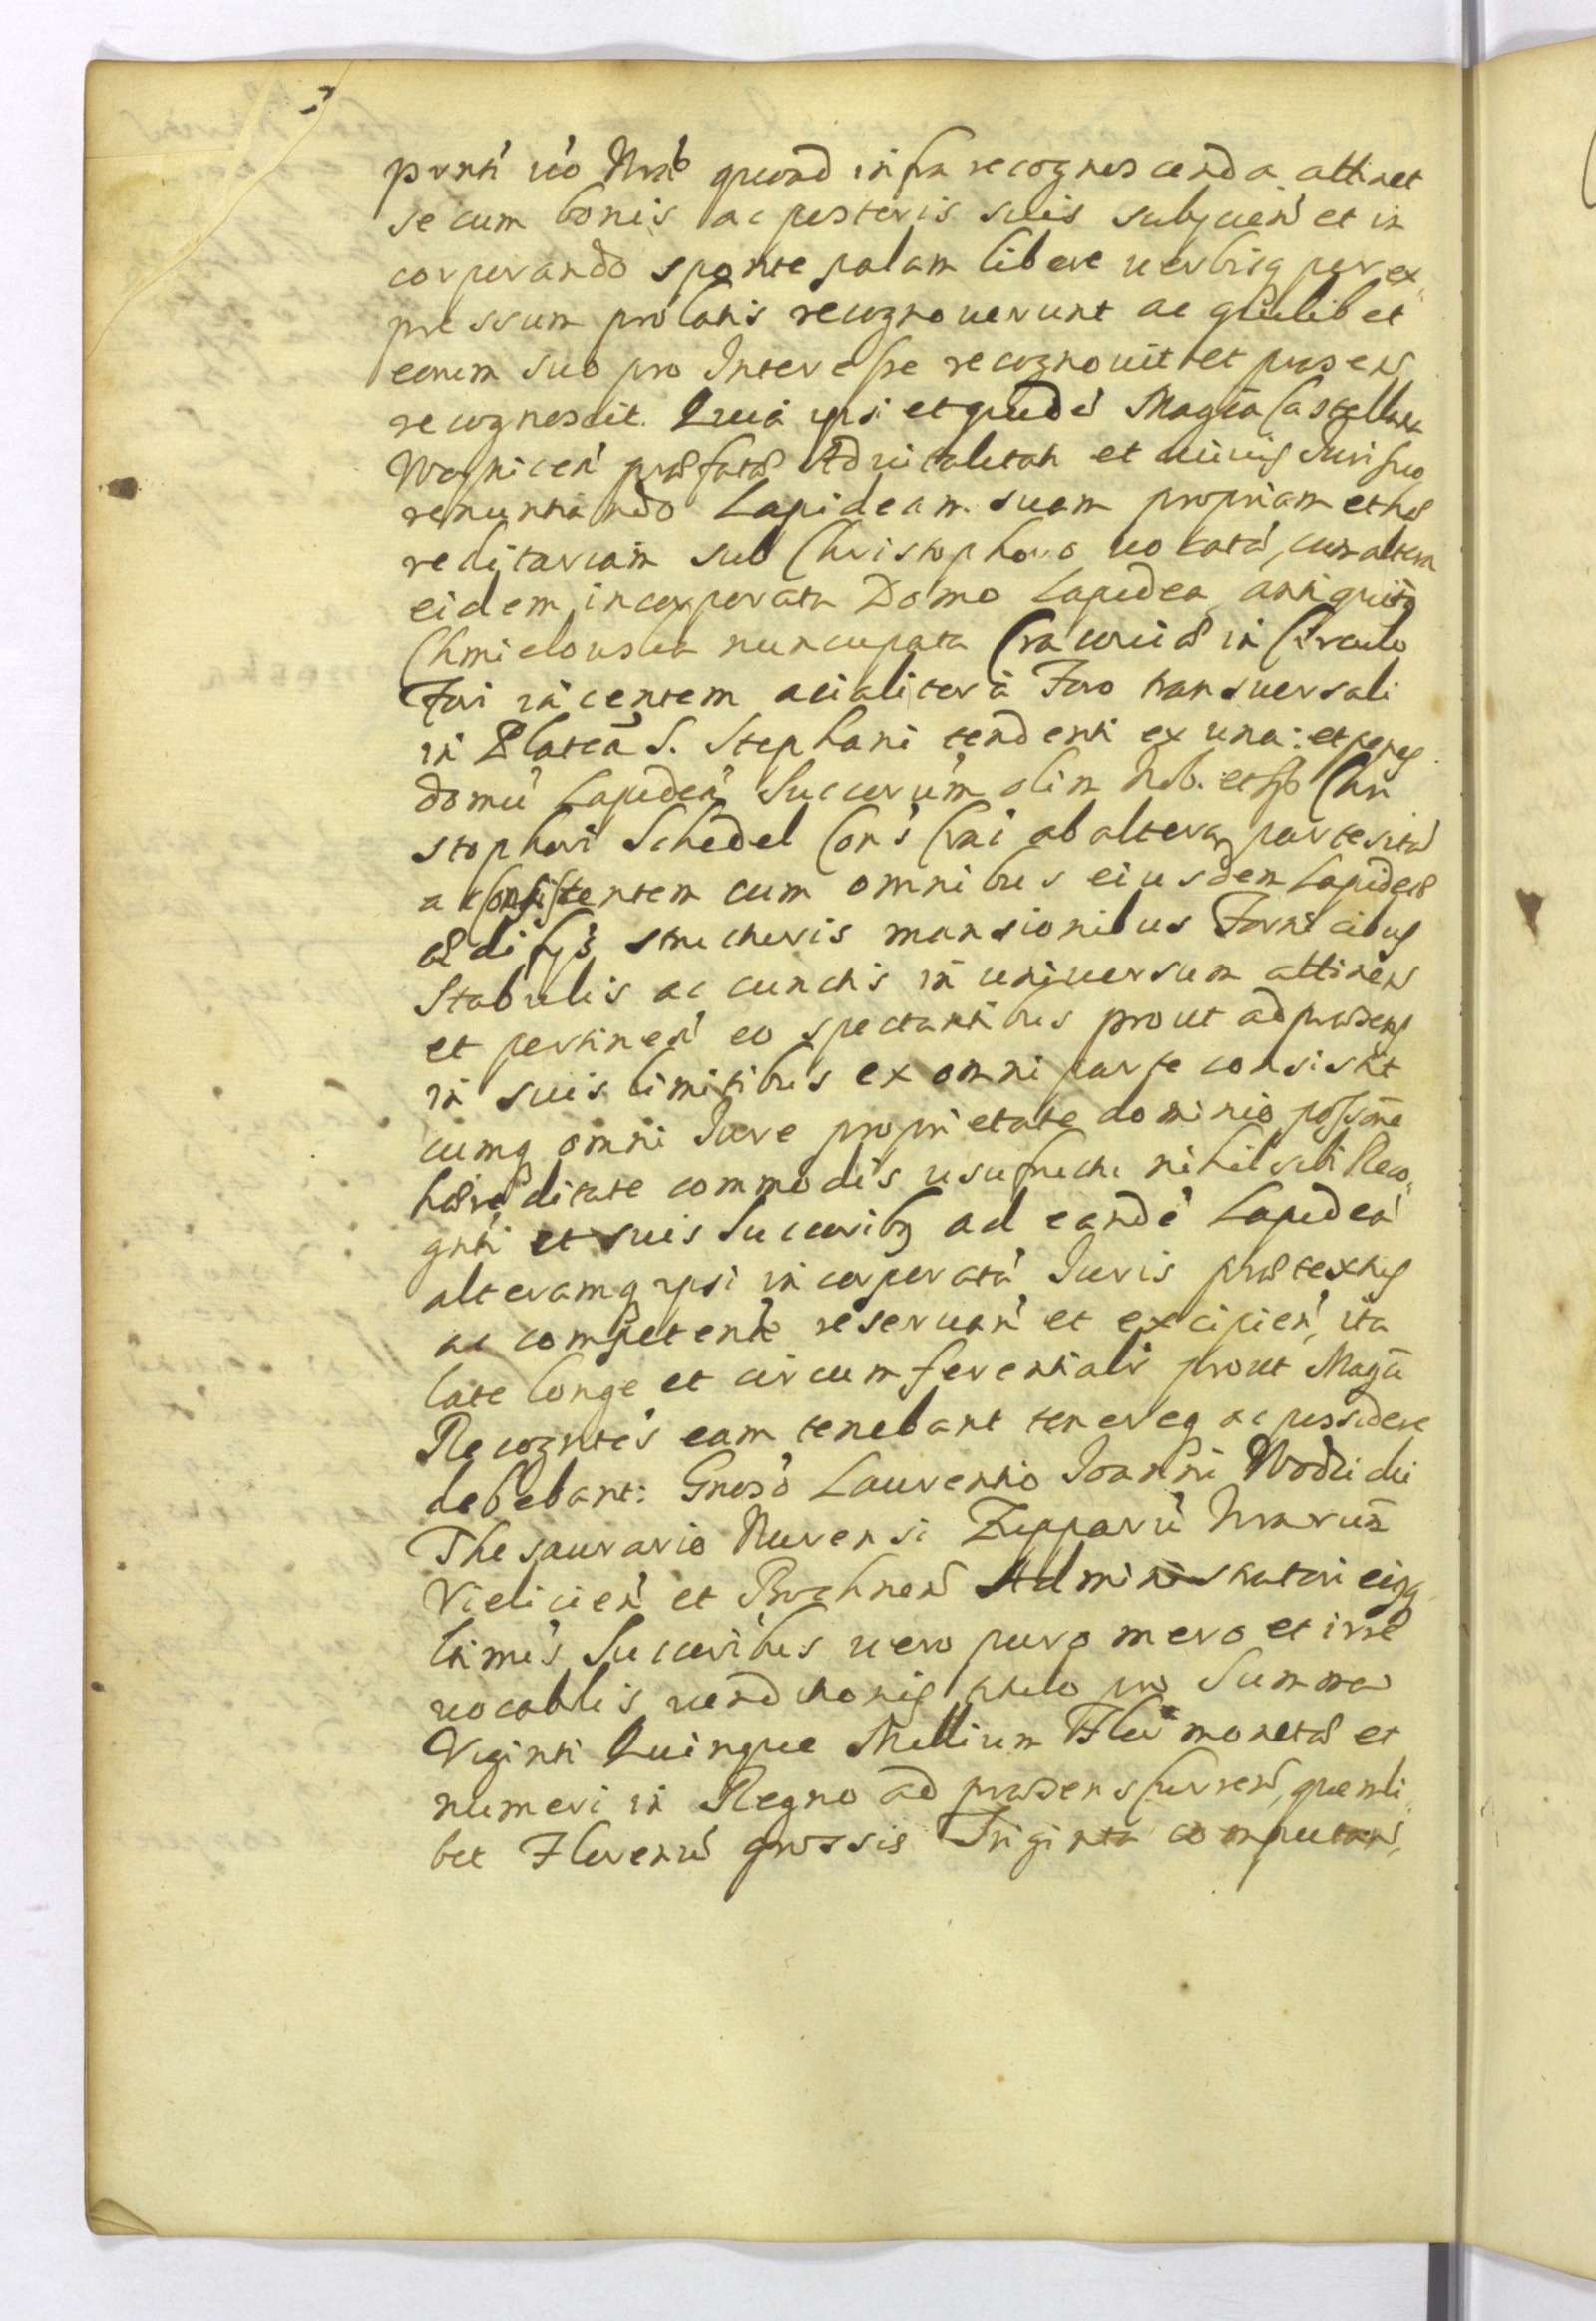 prnti uó Nrae quoad infra recognoscenda attinet
se cum bonis ac posteris suis subijcien et in
corporando sponte palam libere uerbisq per ex,,
pressum prolatis recognouerunt ac quilibet
eorum suo pro Interesse recognouit et praesen
recognoscit. Quia ipsi et quidé Magca Castellana
Woynicen praefata Aduitalitati et Juri suo
renuntiando Lapideam suam propriam et hae
reditariam sub Christophoro uocatá, cum altera
eidem incorporata Domo Lapidea antiquitq
Chmielouska nuncupata Cracouiae in Circulo
Fori iacentem acialiter à Foro transuersali
in Plateá S. Stephani tendenti ex una: et penes
domú Lapideá Succorum olim Nob. et Chri
stophori Schedel Cons Crac ab altera partesitá
ac consistentem cum omnibus eiusdem Lapideae
aedificijs structuris mansionibus Fornicibus
Stabulis ac cunctis in uniuersum attinen
et pertinen eo spectantibus prout ad praesens
in suis limitibus ex omni parte consistit
cumq omni Iure proprietate dominio possone
haereditate commodis usufructu nihil sibi Reco,,
gnti et suis Succoribq ad eandé Lapideá
alteramq ipsi incorporatá Iuris praetextus
ac competentie reseruan et excipien, ita
late longe et circumferentialr prout Magci
Recogntes eam tenebant tenereq ac possidere
debebant: Gnoso Laurentio Joanni Wodzicki
Thesaurario Nurensi Zupparú Nrarum
Vielicien et Bochnen Administratori eiusq
ltimis Succoribus uero puro mero et irre
uocabilis uenditionis titulo pro Summa
Viginti Quinque Millium Flor monetae et
numeri in Regno ad praesens curren, quemli,,
bet Florenú grossis Triginta computan,